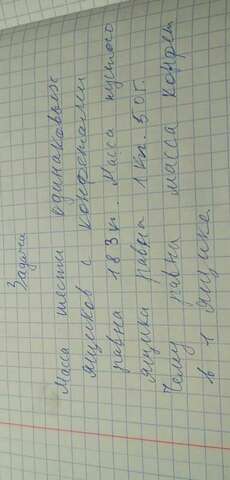 Задачи
Масса шести одинаковых
ящиков с конфетами
равна 183кг. Масса пустого
ящика равна 1 кг. 50г.
Чему равна масса конфет
в 1 ящике.